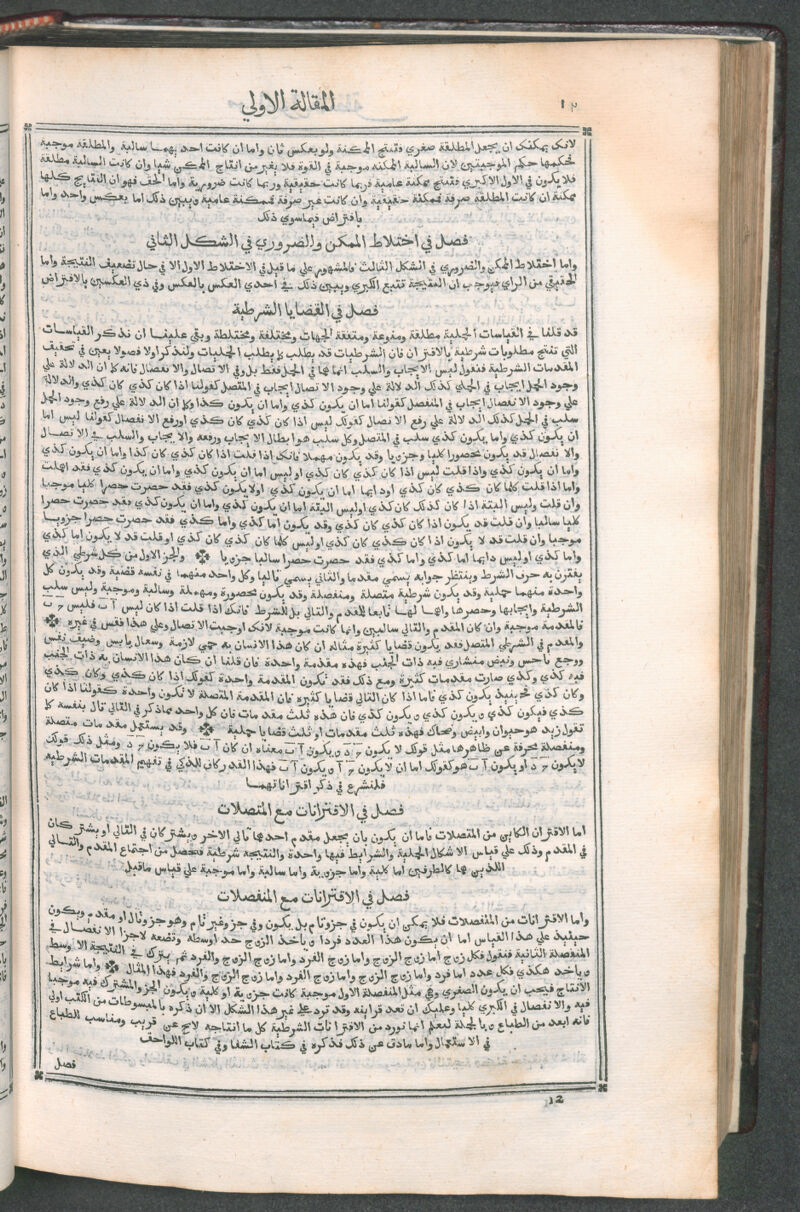 ١٢
المقالة الاولي
لانك يمكنك ان يجعل المطلقة صغري فتنتج الممكنة ولو بعكس ثان واما ان كانت احديهما سالبة والمطلقة موجبة
فحكمها حكم الموجبتين لان السالبة الممكنة موجبة في القوة فلا يغير من انتاج الممكن شيا وان كانت السالبة مطلقة
فلا يكون في الاول الاكبري فتنتج ممكنة عامية فربما كانت حقيقية وربما كانت ضرورية واما الخلف فهو ان النتايج كلها
ممكنة ان كانت المطلقة صرفة فممكنة حقيقية وان كانت غير صرفة فممكنة عامية ويبين ذلك اما بعكس واحد واما
بافتراض فيما سوي ذلك
فصل في اختلاط الممكن والضروري في الشكل الثاني
واما اختلاط الممكن والضروري في الشكل الثالث فالمشهور علي ما قيل في الاختلاط الاول الا في حال تضعيف النتيجة واما
الحقيقي من الراي فيوجب ان النتيجة تتبع الكبري ويبين ذلك في احدي العكس بالعكس وفي ذي العكسين بالافتراض
فصل في القضايا الشرطية
قد قلنا في القياسات الحملية مطلقة ومنوعة ومتفقة الجهات ومختلفة ومختلطة وبقي علينا ان نذكر القياسات
التي تنتج مطلوبات شرطية بالاقتران فان الشرطيات قد يطلب كما يطلب الحمليات ولنذكر اولا فصولا يعين في تحقيق
المقدمات الشرطية فنقول ليس الايجاب والسلب انما هما في الحمل فقط بل وفي الاتصال والانفصال فانه كما ان الدلالة علي
وجود الحمل ايجاب في الحملي كذلك الدلالة علي وجود الاتصال ايجاب في المتصل كقولنا اذا كان كذي كان كذي والدلالة
علي وجود الانفصال ايجاب في المنفصل كقولنا اما ان يكون كذي واما ان يكون كذا وكما ان الدلالة علي رفع وجود الحمل
سلب في الحمل كذلك الدلالة علي رفع الاتصال كقولك ليس اذا كان كذي كان كذي اورفع الانفصال كقولنا ليس اما
ان يكون كذي واما يكون كذي سلب في المتصل وكل سلب هو ابطال الايجاب ورفعه والايجاب والسلب في الاتصال
والانفصال قد يكون محصورا كليا وجزييا وقد يكون مهملا فانك اذا قلت اذا كان كذي كان كذا واما ان يكون كذي
واما ان يكون كذي واذا قلت ليس اذا كان كذي كان كذي او ليس اما ان يكون كذي واما ان يكون كذي فقد اهملت
واما اذا قلت كلما كان كذي كان كذي او دايما اما ان يكون كذي اولا يكون كذي فقد حصرت حصرا كليا موجبا
وان قلت وليس البتة اذا كان كذلك كان كذي اوليس البتة اما ان يكون كذي واما ان يكون كذي فقد حصرت حصرا
كليا سالبا وان قلت قد يكون اذا كان كذي كان كذي وقد يكون اما كذي واما كذي فقد حصرت حصرا جزييا
موجبا وان قلت قد لا يكون اذا كان كذي كان كذي اوليس كلما كان كذي كان كذي اوقلت قد لا يكون اما كذي
واما كذي اوليس دايما اما كذي واما كذي فقد حصرت حصرا سالبا جزييا والجز الاول من كل شرطي الذي
يقترن به حرف الشرط وينتظر جوابه يسمي مقدما والثاني يسمي تاليا وكل واحد منهما في نفسه قضية وقد يكون كل
واحدة منهما حملية وقد يكون شرطية متصلة ومنفصلة وقد يكون محصورة ومهملة وسالبة وموجبة وليس سلب
الشرطية وايجابها وحصرها واهمالها تابعا للمقدم والتالي بل للشرط فانك اذا قلت اذا كان ليس آ ب فليس ج د
فالمقدمة موجبة وان كان المقدم والتالي سالبين وانما كانت موجبة لانك اوجبت الاتصال وعلي هذا فقس في غيره
والمقدم في الشرطي المتصل فقد يكون قضايا كثيرة مثاله ان كان هذا الانسان به حمي لازمة وسعال يابس وضيق نفس
ووجع ناخس ونبض منشاري فبه ذات الجنب فهذه مقدمة واحدة فان قلنا ان كان هذا الانسان به ذات الجنب
فبه كذي وكذي صارت مقدمات كثيرة ومع ذلك فقد تكون المقدمة واحدة كقولك اذا كان كذي وكان كذي
وكان كذي فحينيذ يكون كذي فاما اذا كان التالي قضايا كثيرة فان المقدمة المتصلة لا تكون واحدة كقولنا اذا كان
كذي فيكون كذي ويكون كذي ويكون كذي فان هذه ثلث مقدمات فان كل واحد مما ذكر في التالي تال بنفسه كما
تقول زيد هو حيوان وابيض وضحاك فهذه ثلث مقدمات او ثلث قضايا حملية وقد يستعمل مقدمات متصلة
ومنفصلة محرفة عن ظاهرها مثل قولك لا يكون ج د ويكون آ ب معناه ان كان آ ب فلا يكون ج د ومثل ذلك قولك
لا يكون ج د او يكون آ ب هو كقولك اما ان لا يكون ج د واما ان يكون آ ب فهذا القدر كاف للذكي في تفهيم المقدمات الشرطية
فلنشرع في ذكر اقتراناتهما
فصل في الاقترانات مع المتصلات
اما الاقتران الكاين من المتصلات فاما ان يكون بان يجعل مقدم احدهما تالي الاخر ويشتركان في التالي او يشتركان
في المقدم وذلك علي قياس الاشكال الحملية والشرايط فيها واحدة والنتيجة شرطية فتحصل من اجتماع المقدم والتالي
اللذين هما كالطرفين اما كلية واما جزيية واما سالبة واما موجبة علي قياس ما قيل
فصل في الاقترانات مع المنفصلات
واما الاقترانات من المنفصلات فلا يمكن ان يكون في جزو تام بل يكون وفي جزو غير تام وهو جزو تال او مقدم ويكون
حينيذ علي هذا القياس اما ان يكون هذا العدد فردا وياخذ الزوج حد اوسطه وتضعه لاجزا الانفصال في
المنفصلة الثانية فنقول فكل زوج اما زوج الزوج واما زوج الفرد واما زوج الزوج والفرد ثم يترك في النتيجة الاوسط
وياخد هكذي فكل عدد اما فرد واما زوج الزوج واما زوج الفرد واما زوج الزوج والفرد فهذا المثال واما شرايط
الانتاج فيجب ان يكون الصغري وهي مثل المنفصلة الاول موجبة كانت جزيية او كلية ويكون الجز والمشترك فيه موجبا
فيه والانفصال في الكبري كليا وعليك ان تعد قراينه وقد ترد علي غير هذا الشكل الا ان ذكره بالمبسوطات من الكتب اولي
فانه ابعد من الطباع وبالجملة ليعلم انما نورد من الاقترانات الشرطية كل ما انتاجه لايح عن قريب ومناسب للطباع
في الاستعمال واما ما دق عن ذلك فذكره في كتاب الشفا وفي كتاب اللواحق
فصل
12